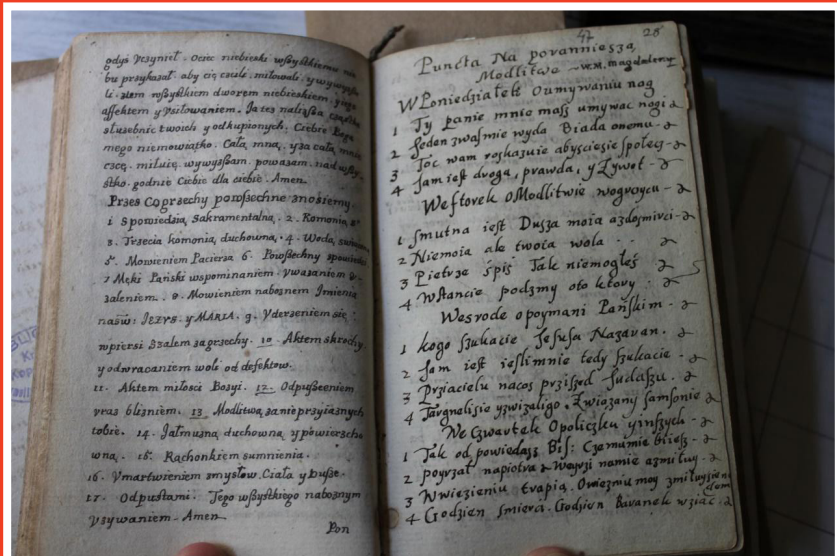 godyś uczynieł. Ociec niebieski wssystkiemu nie
bu przykazał. aby cię czcili. miłowali. y wywyssa
li. ztem wssystkiem dworem niebieskiem. y iego
affektem y vsiłowaniem. Ja tes nalissa cząstka
słusebnic twoich y odkupionych. Ciebie Boga
mego niemowiątko. Całą mną. y za całą mnie
czcę. miłuię. wywyssam. powazam. nad wssy
stko. godnie Ciebie dla ciebie. Amen
Przes Co grzechy powssechne znosiemy
i Spowiedzią Sakramentalną. 2. Komonią S
3. Trzecia komonią duchowną. 4. Wodą święconą
5. Mowieniem Pacierza 6. Powssechny spowiedzi
7 Męki Pański wspominaniem. Vwazaniem y
zaleniem. 8. Mowieniem naboznem Imienia
naśw: JEZVS. y MARIA. 9. Vderzeniem się
wpiersi Szalem zagrzechy. 10. Aktem skruchy
y odwracaniem woli od defektow.
11. Aktem miłości Bozyi. 12. Odpussceniem
vras blizniem. 13. Modlitwą za nieprzyiaznych
tobie. 14. Jałmuzną duchowną y powierzcho
wną. 15. Rachonkiem sumnienia.
16. Vmartwieniem zmysłow. Ciała y Dusse.
17. Odpustami. Tego wssystkiego naboznym
Vzywaniem. Amen
Pon
47 28
Puncta Na porannieszą
Modlitwe ~ w.M. magdaleny
W Poniedziałek O umywaniu nog
1 Ty panie mnie mass umywac nogi
2 Jeden zwas mie wyda Biada onemu
3 Toc wam roskazuie abysciesie społecz
4 Jam iest droga, prawda, y Zywot
We ftorek O Modlitwie wogroycu
1 smutna iest Dusza moia azdosmirci
2 Niemoia ale twoia wola
3 Pietrze śpis Tak niemogłeś
4 Wstancie podzmy oto ktory
We srode o poymani Pańskim
1 kogo szukacie Jesusa Nazaran.
2 Jam iest iesli mnie tedy szukacie
3 Prziacielu nacos przised Judaszu.
4 Targnelisie yzwizaligo. Związany samsonie
We Czwartek O policzku yinszych
1 Tak odpowiedasz Bis: Czemu mie biiesz
2 poyrzał na piotra Weyrzi namie azmiłuy
3 W wiezieniu trapią. O wiezniu moy zmiłuysie na
demn
4 Godzien smierci. Godzien Baranek wziąc